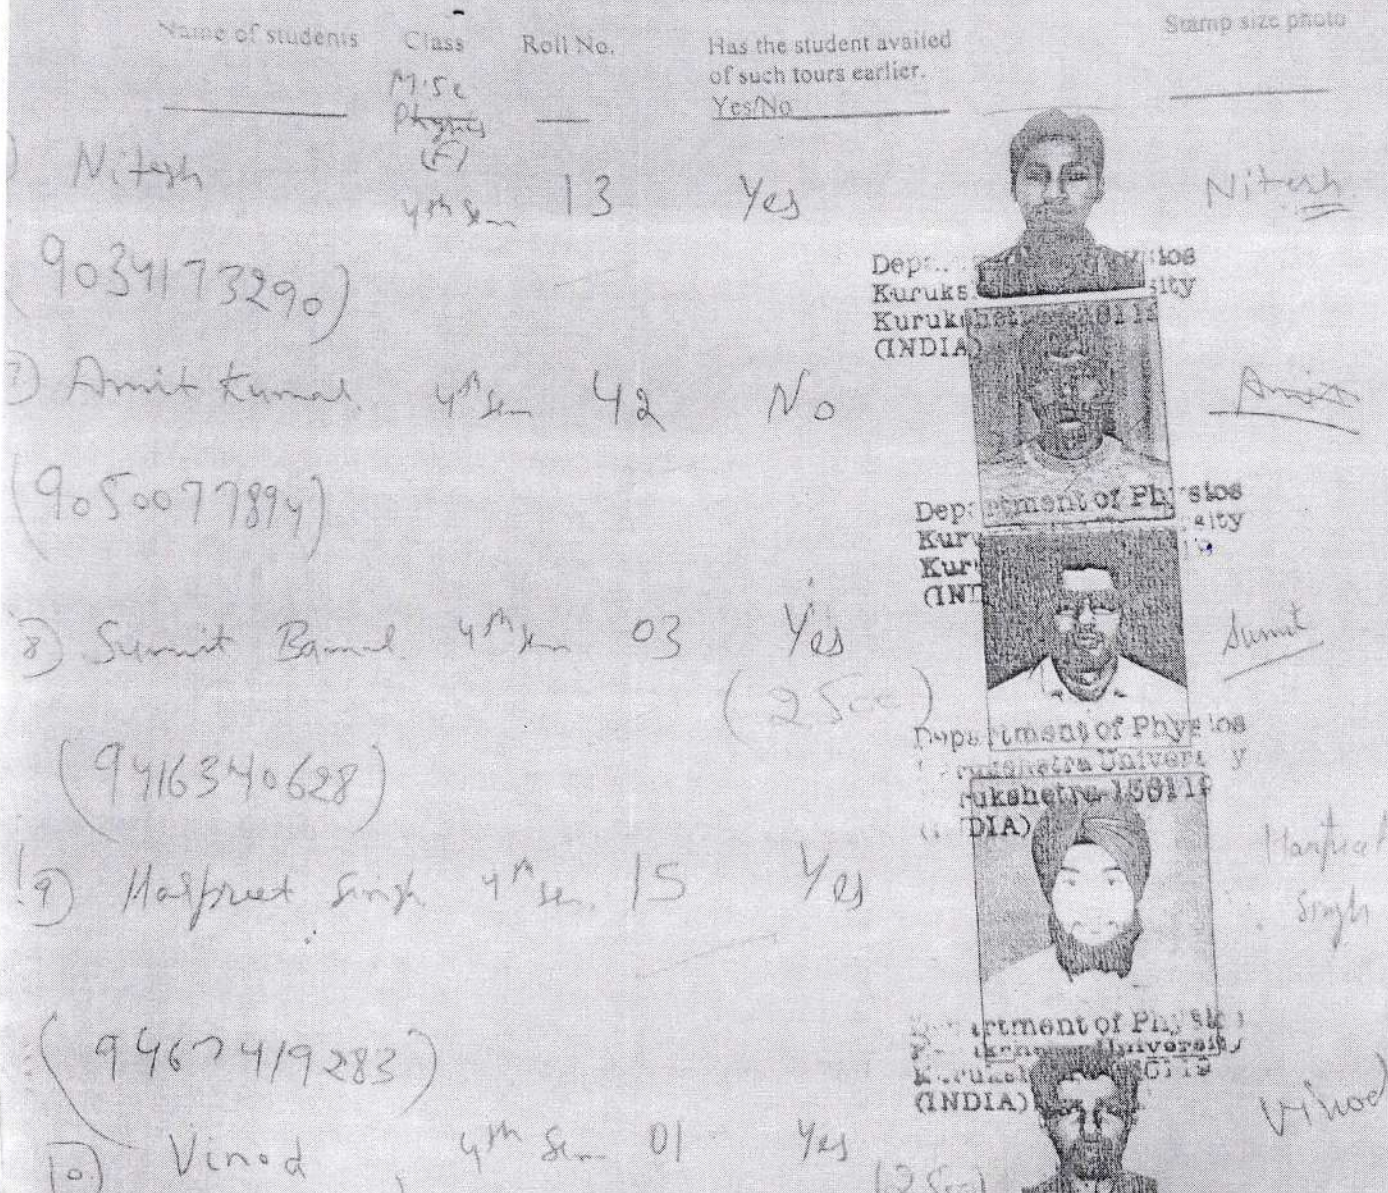 Name of students Class Roll No. Has the student availed of such tours earlier. Yes/No Stamp size photo
M.Sc
Physics
(F)
Nitesh 4th Sem 13 Yes Nitesh
(9034173290)
Department of Physics
Kurukshetra University
Kurukshetra-136119
(INDIA)
7) Amit Kumar 4th Sem 42 No Amit
(9050077894)
Department of Physics
Kurukshetra University
Kurukshetra
(INDIA)
8) Summit Bamal 4th Sem 03 Yes Sumit
(2500)
(9416340628)
Department of Physics
Kurukshetra University
Kurukshetra-136119
(INDIA)
9) Harpreet Singh 4th Sem 15 Yes Harpreet Singh
(9467419283)
Department of Physics
Kurukshetra University
Kurukshetra-136119
(INDIA)
10) Vinod 4th Sem 01 Yes Vinod
(2500)